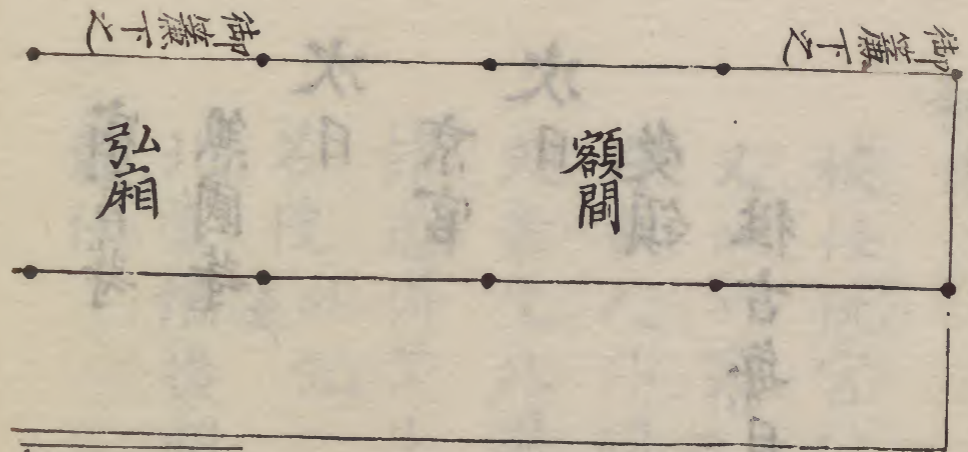 御簾下之
御簾下之
額間
弘廂